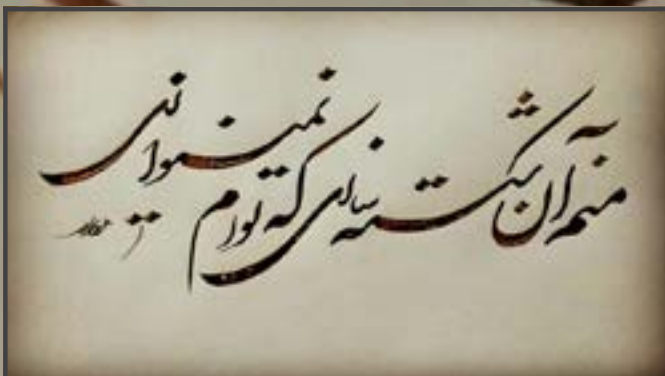 منم آن شکسته سازی که توام نمینوازی